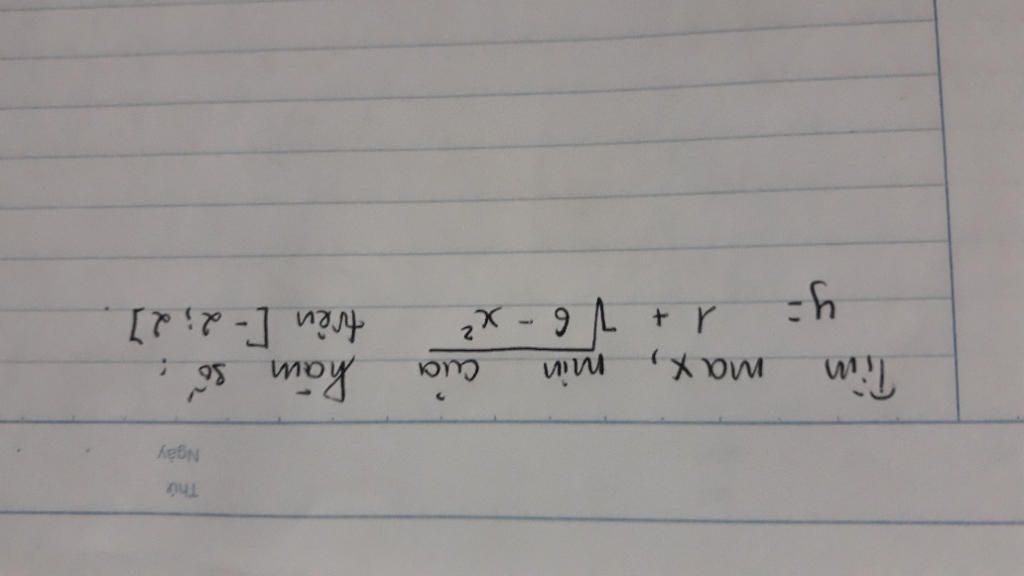 Thứ
Ngày
Tìm max, min của hàm số :
y = 1 + √6 - x² trên [-2 ; 2] .